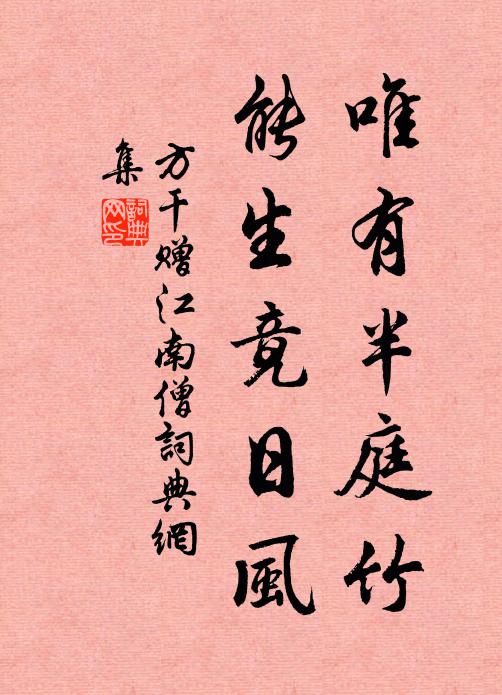 唯有半庭竹
能生竟日風
方干贈江南僧詞典網
集
詞典網印